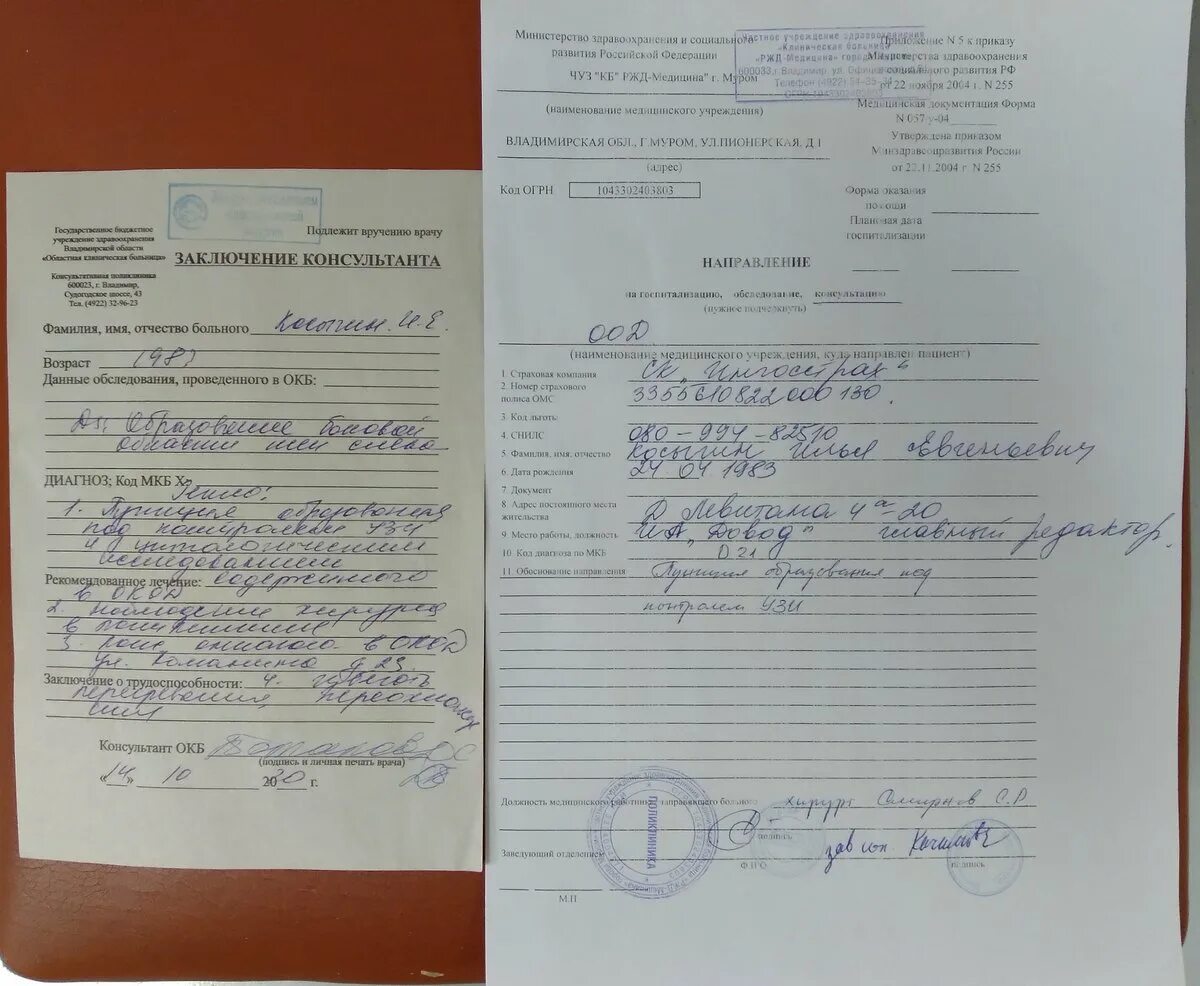 Государственное бюджетное
учреждение здравоохранения
Владимирской области
«Областная клиническая больница»
Консультативная поликлиника
600023, г. Владимир,
Судогодское шоссе, 43
Тел. (4922) 32-96-23
Подлежит вручению врачу
ЗАКЛЮЧЕНИЕ КОНСУЛЬТАНТА
Фамилия, имя, отчество больного Косыгин И.Е.
Возраст 1983
Данные обследования, проведенного в ОКБ:
Ds: Образование боковой
области шеи слева
ДИАГНОЗ; Код МКБ X:
1. Пункция образования
под контролем УЗИ
и цитологическим
исследованием
Рекомендованное лечение: содержимого
в ОКОД
2. наблюдение хирурга
в поликлинике
3. конс. онколога в ОКОД
ул. Каманина д 23.
Заключение о трудоспособности: 4. избегать
перегревания, переохлажде
ния
Консультант ОКБ
(подпись и личная печать врача)
«14» 10 2020 г.
Министерство здравоохранения и социального
развития Российской Федерации
ЧУЗ "КБ" РЖД-Медицина" г. Муром
(наименование медицинского учреждения)
ВЛАДИМИРСКАЯ ОБЛ., Г.МУРОМ, УЛ.ПИОНЕРСКАЯ, Д 1
(адрес)
Код ОГРН 1043302403803
Частное учреждение здравоохранения
«Клиническая больница
«РЖД-Медицина» города
600033, г. Владимир, ул.
Телефон (4922)
ОГРН 1043302403803
Приложение N 5 к приказу
Министерства здравоохранения
и социального развития РФ
от 22 ноября 2004 г. N 255
Медицинская документация Форма
N 057/у-04
Утверждена приказом
Минздравсоцразвития России
от 22.11.2004 г. N 255
Форма оказания
помощи
Плановая дата
госпитализации
НАПРАВЛЕНИЕ
на госпитализацию, обследование, консультацию
(нужное подчеркнуть)
ООД
(наименование медицинского учреждения, куда направлен пациент)
1. Страховая компания СК "Ингосстрах"
2. Номер страхового
полиса ОМС 3355610822000130.
3. Код льготы
4. СНИЛС 080-994-82510
5. Фамилия, имя, отчество Косыгин Илья Евгеньевич
6. Дата рождения 24 04 1983
7. Документ
8 Адрес постоянного места
жительства Д Левитана 4а-20
9. Место работы, должность ИА "Довод" главный редактор.
10. Код диагноза по МКБ D.21.
11. Обоснование направления Пункция образования под
контролем УЗИ
Должность медицинского работника, направившего больного хирург Смирнов С.Р
подпись
Заведующий отделением зав
Ф И О подпись
М.П
ПОЛИКЛИНИКА